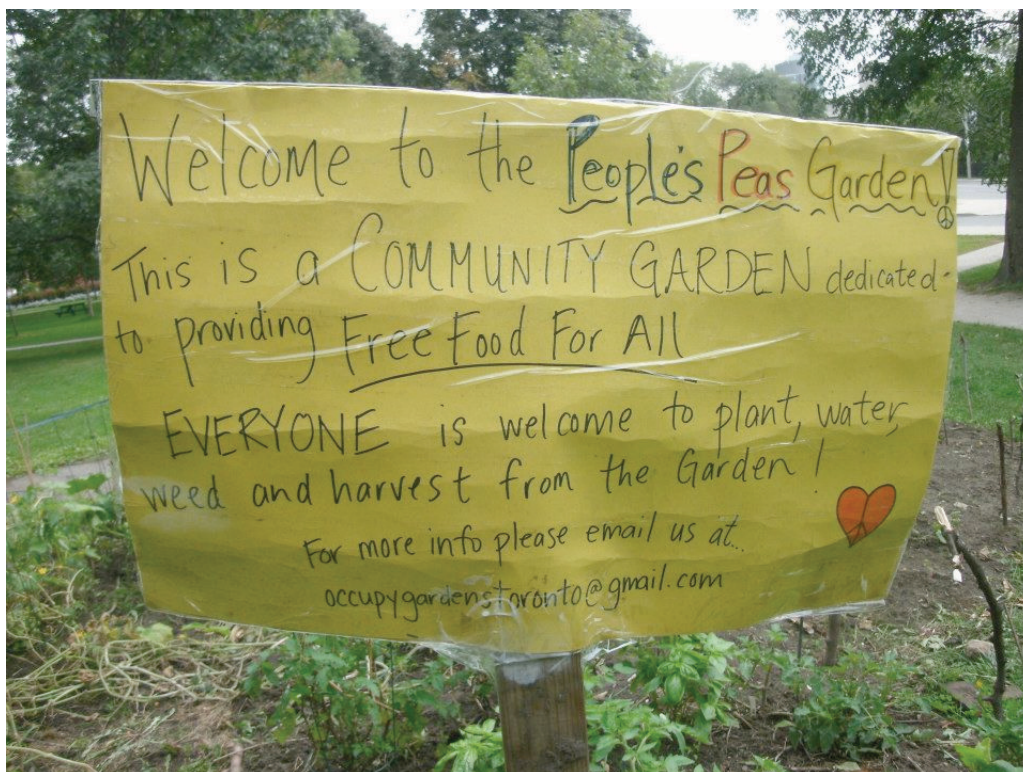 Welcome to the People's Peas Garden!
This is a COMMUNITY GARDEN dedicated
to providing Free Food For All
EVERYONE is welcome to plant, water,
weed and harvest from the Garden!
For more info please email us at...
occupygardenstoronto@gmail.com